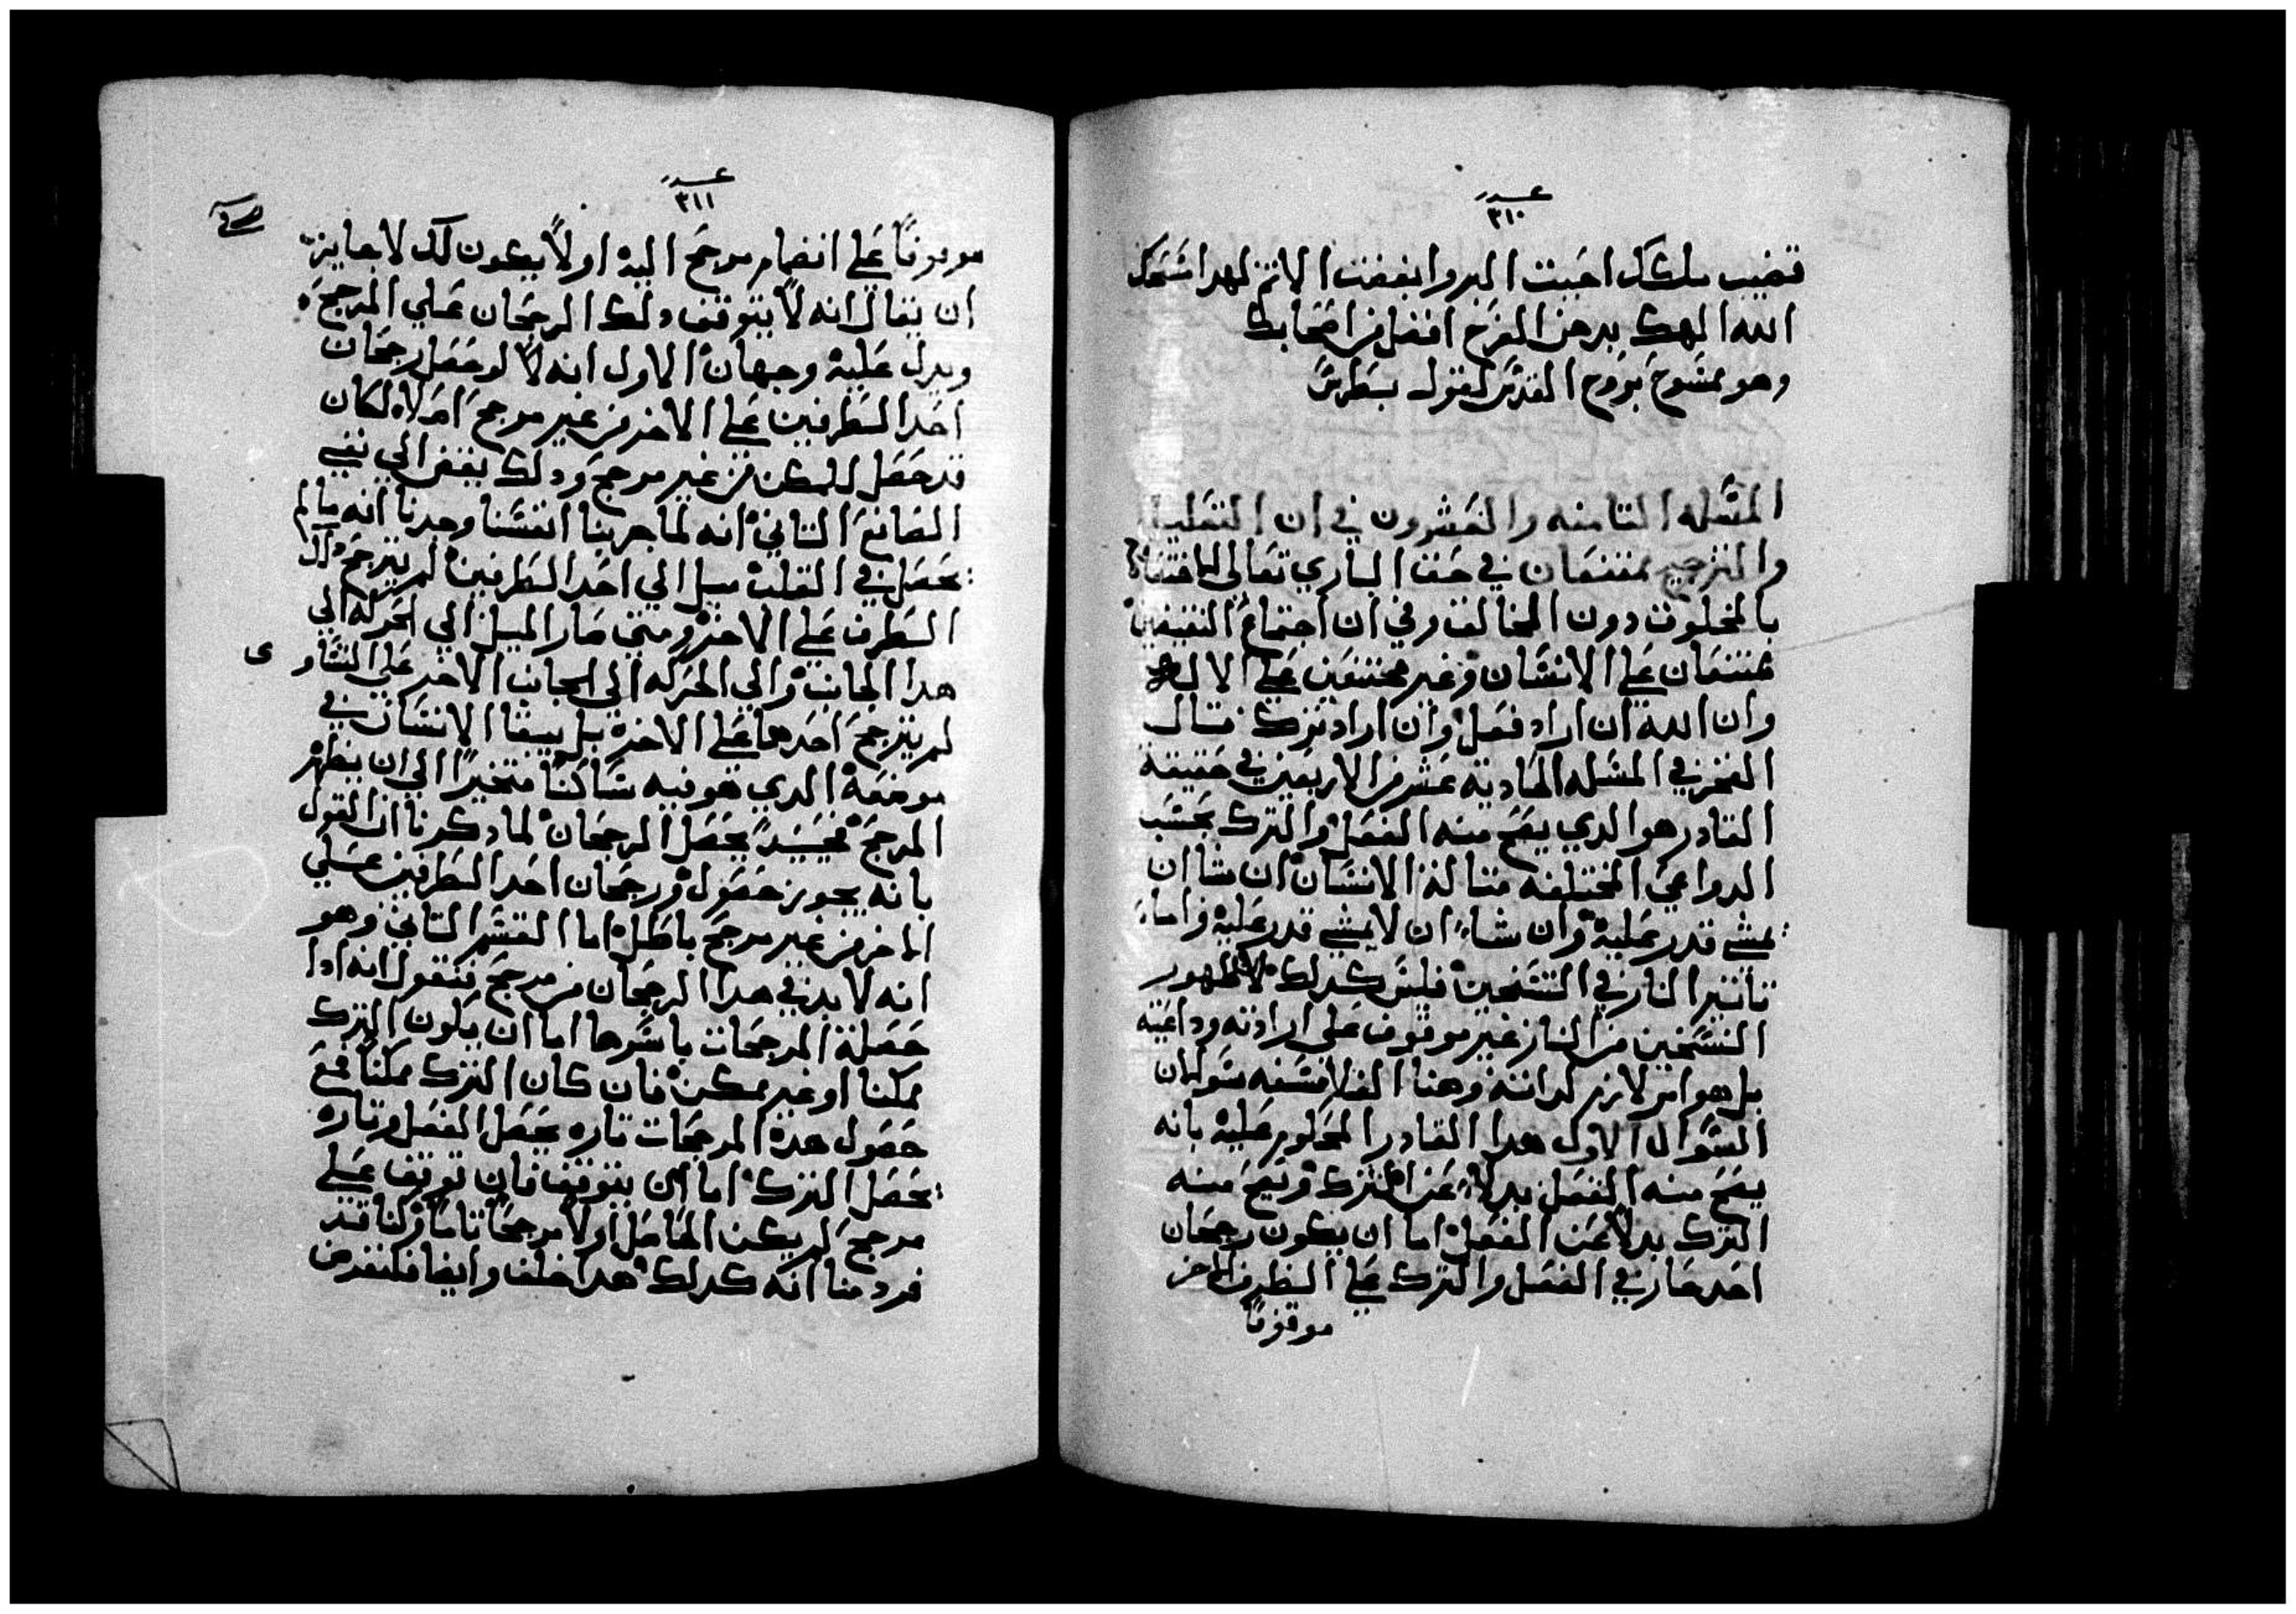 عدد
٣١٠
قضيب ملكك احببت البر وابغضت الاثم لهدا مسحك
الله الهك بدهن الفرح افضل من اصحابك
وهو ممسوح بروح القدس لقول بطرس
المسله التامنه والعشرون في ان التقليد
والترجيح ممتنعان في حق الباري تعالي
بالمخلوق دون الخالق وفي ان اجتماع النقيضين
ممتنعان علي الانسان وغير ممتنعين علي الاله
وان الله ان اراد فعل وان اراد ترك قال
الفخر في المسله الحاديه عشر من الاربعين في حقيقة
القادر هو الدي يصح منه الفعل والترك بحسب
الدواعي المختلفه متاله الانسان ان شا ان
يمشي قدر عليه وان شاء ان لا يمشي قدر عليه واما
تاتير النار في التسخين فليس كدلك لان ظهور
التسخين من النار غير موقوف علي ارادته وداعيته
بل هو امر لازم لداته وهنا الفلاسفه سولان
السوال الاول هدا القادر المحكوم عليه بانه
يصح منه الفعل بدلا عن الترك ويصح منه
الترك بدلا عن الفعل اما ان يكون رجحان
احد طرفي الفعل والترك علي الطرف الاخر
موقوفا
عدد
٣١١
موقوفا علي انضمام مرجح اليه اولا يكون كدلك لا جايز
ان يقال انه لا يتوقف دلك الرجحان علي المرجح
ويدل عليه وجهان الاول انه لو حصل رجحان
احد الطرفين علي الاخر من غير مرجح اصلا لكان
قد حصل الممكن من غير مرجح ودلك يفضي الي نفي
الصانع التاني انه لما جربنا انفسنا وجدنا انه ما لم
يحصل في القلب ميل الي احد الطرفين لم يترجح دلك
الطرف علي الاخر ومتي صار الميل الي الحركه الي
هدا الجانب والي الحركه الي الجانب الاخر علي التساو
ي
لم يترجح احدهما علي الاخر بل يبقا الانسان في
موضعه الدي هو فيه ساكنا متحيرا الي ان يظهر
المرجح فحينيد يحصل الرجحان لما دكرنا ان القول
بانه يجوز حصول رجحان احد الطرفين علي
الاخر من غير مرجح باطل اما القسم التاني وهو
انه لا بد في هدا الرجحان من مرجح فنقول انه ادا
حصلة المرجحات باسرها اما ان يكون الترك
ممكنا او غير ممكن فان كان الترك ممكنا فمع
حصول هده المرجحات تاره يحصل الفعل وتاره
يحصل الترك اما ان يتوقف فان توقف علي
مرجح لم يكن الحاصل اولا مرجحا تاما وكنا قد
فرضنا انه كدلك هدا خلف وايضا فلنفرض